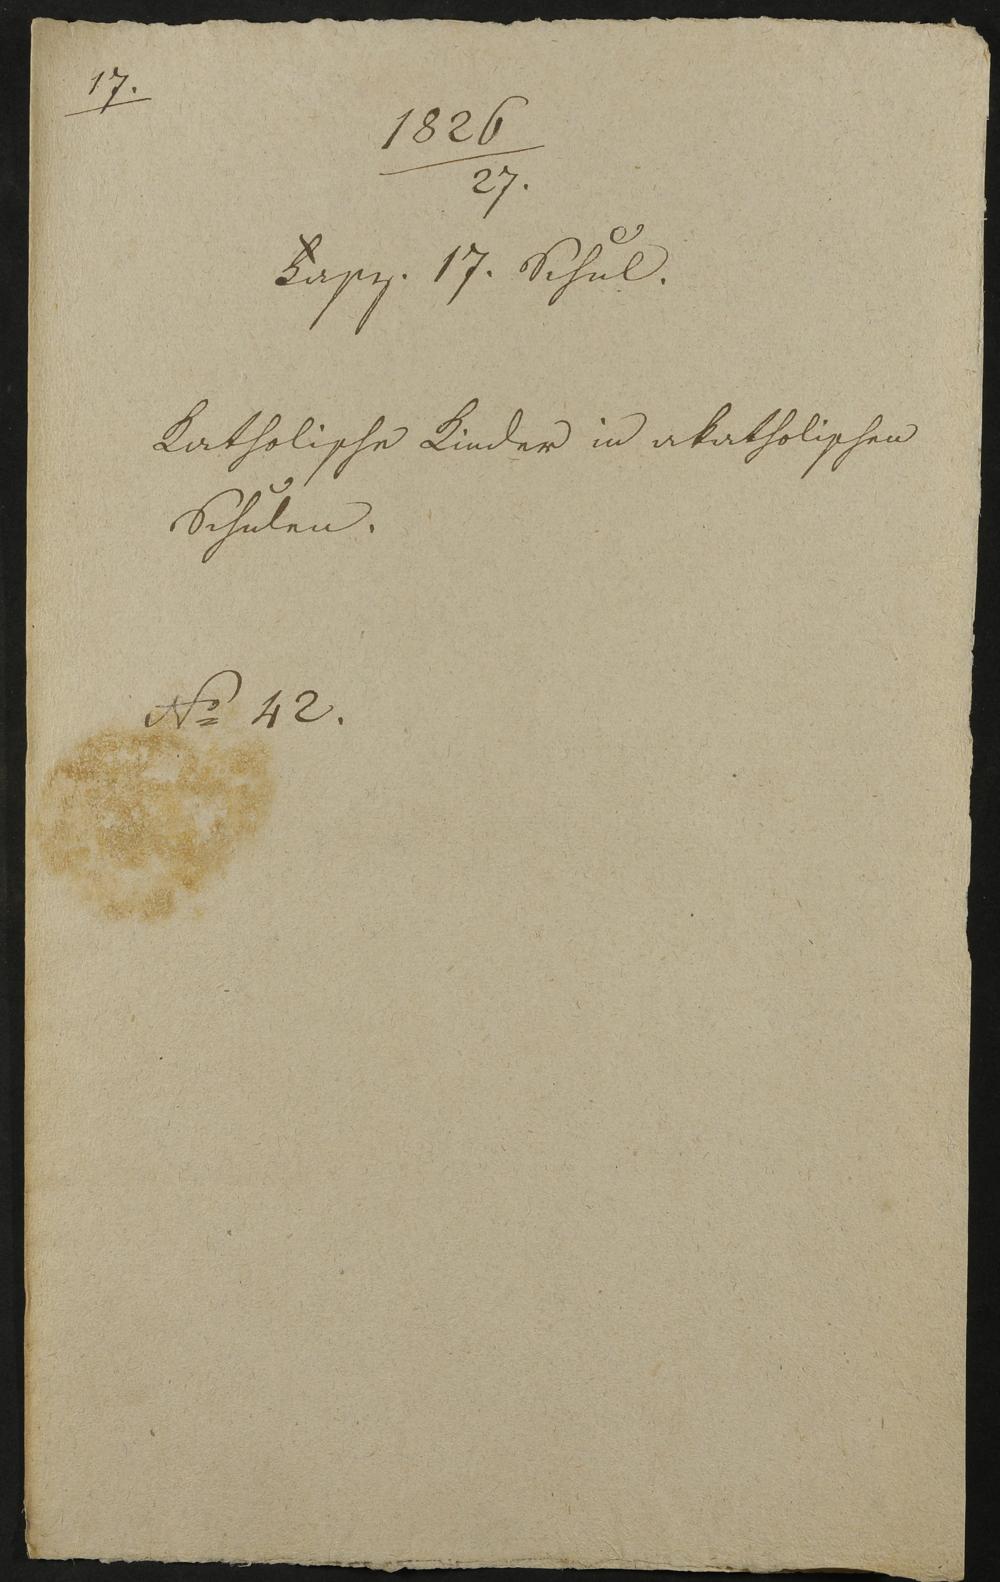 17.
1826
27.
17. Schul.
Katholische Kinder in akatholischen
Schulen.
No 42.